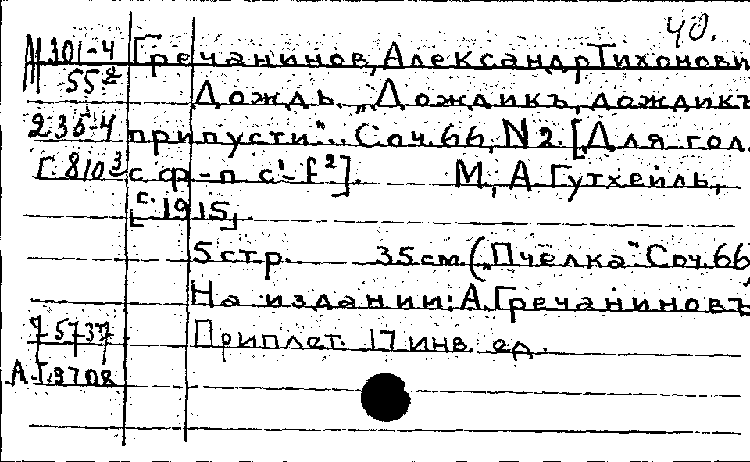 40.
М 301-4 Гречанинов, Александр Тихонови
55² Дождь. „Дождикъ, дождикъ
235-4 припусти".. Соч. 66, N 2. [Для гол.
Г. 810³ с ф-п с¹-f²]. М., А. Гутхейль,
[г. 1915].
5 стр. 35 см. („Пчелка". Соч. 66
На издании: А. Гречаниновъ
75737 Приплет. 17 инв. ед.
А.Г. 3708